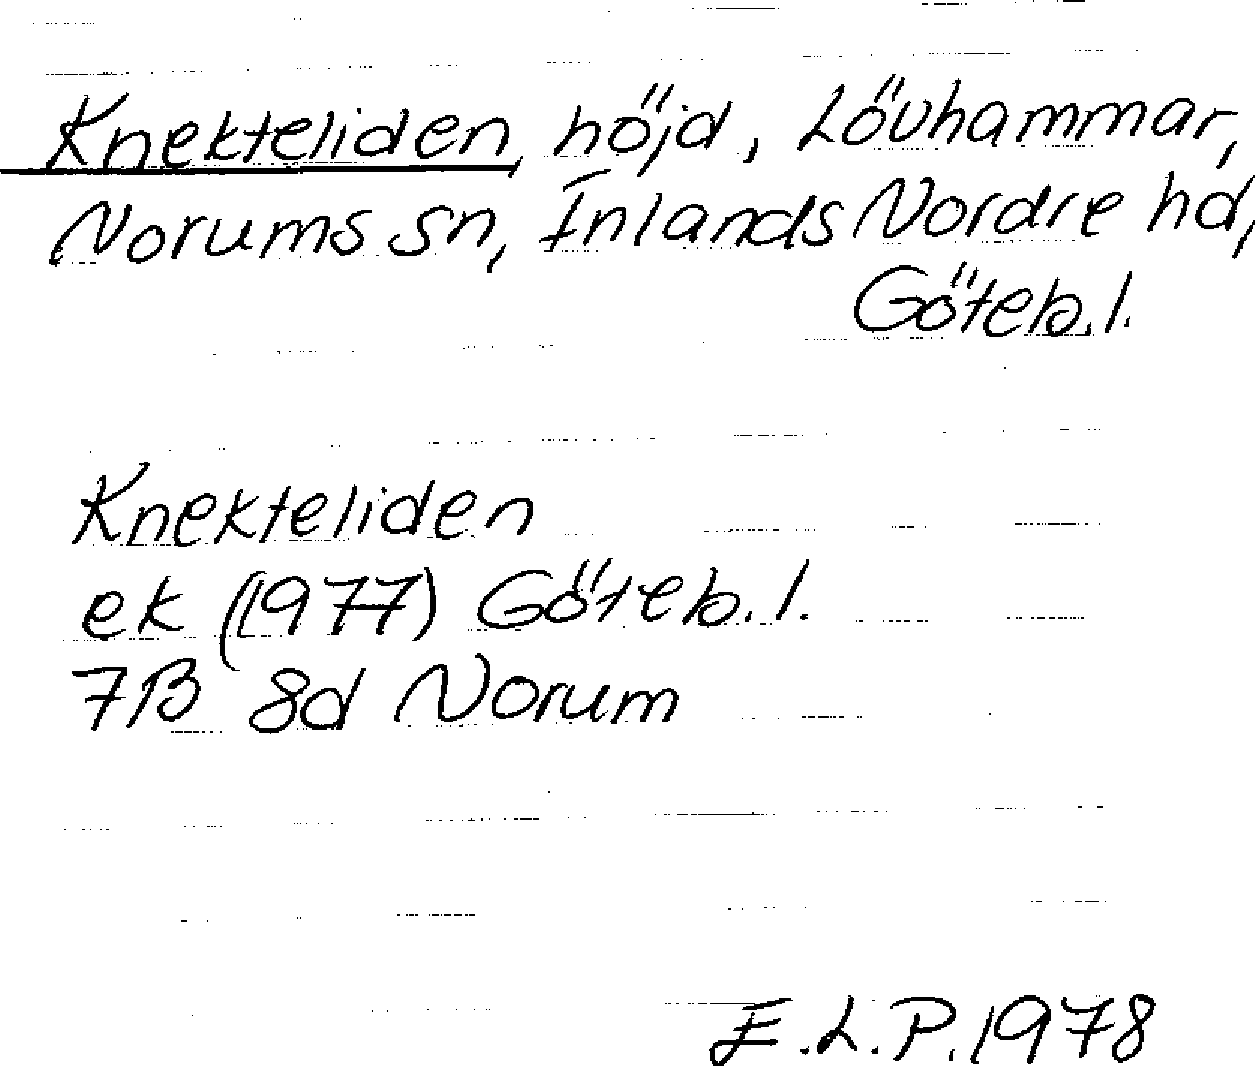 Knekteliden, höjd, Lövhammar,
Norums sn, Inlands Nordre hd,
Göteb.l.
Knekteliden
ek (1977) Göteb.l.
7B 8d Norum
E.L.P. 1978